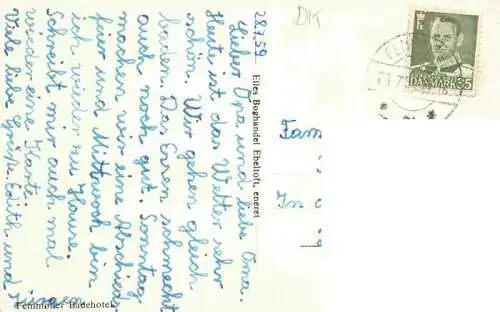 28.7.59
Lieber Opa und liebe Oma.
Heute ist das Wetter sehr
schön. Wir gehen gleich
baden. Das Essen schmeckt
auch noch gut. Sonntag
machen wir eine Abschieds
feier und Mittwoch bin
ich wieder zu Hause.
Schreibt mir auch mal
wieder eine Karte
Viele liebe Grüße. Edith und
Jürgen
Femmøller Badehotel
Elles Boghandel Ebeltoft, eneret
DK
DANMARK 35
Fam
In